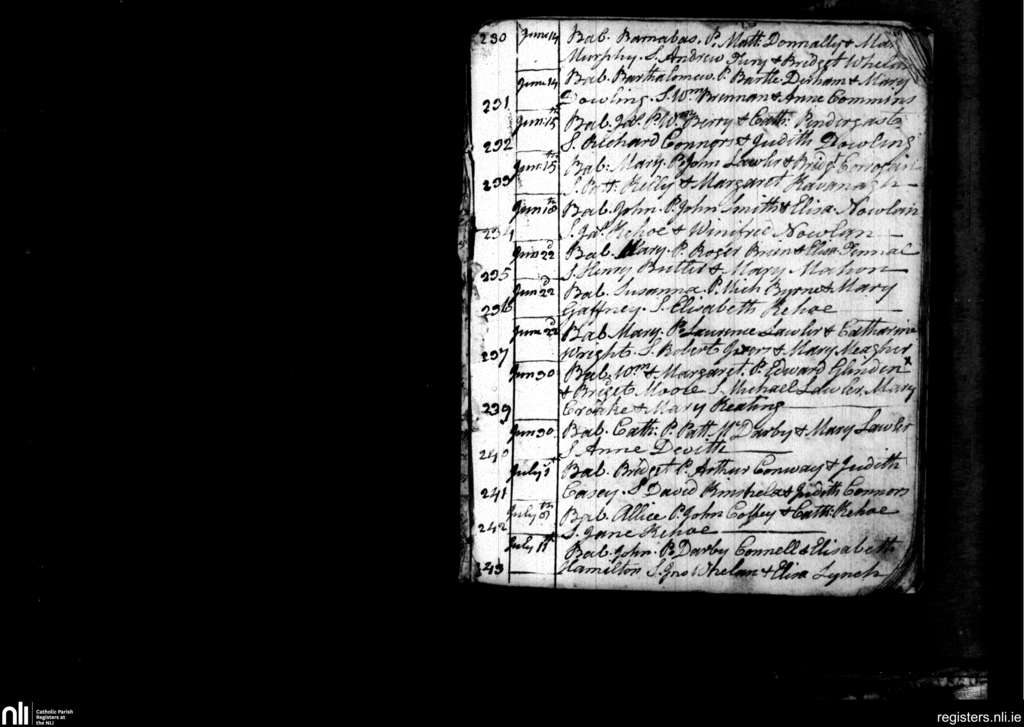 230 June 14 Bab. Barnabas. P. Math Donnally & Mar
Murphy. S. Andrew Fury & Bridget Whelan
June 14 Bab. Bartholomew. P. Bartle Dirham & Mary
231 Dowling. S. Wm Brennan & Anne Commins
June 15th Bab. Jas. P. Wm Berry & Cath: Pindergast
232 S. Richard Connors & Judith Dowling
June 15th Bab. Mary. P. John Lawler & Bridgt
233 S. Patt. Kelly & Margaret Kavanagh
Jun 18th Bab. John. P. John Smith & Elisa. Nowlan
234 S. Jas. Kehoe & Winifred Nowlan
Jun 22d Bab. Mary. P. Roger Brien & Elisa
235 S. Henry Butler & Mary Mahon
Jun 22d Bab. Susanna. P. Mich Byrne & Mary
236 Gaffney. S. Elisabeth Kehoe
June 22d Bab Mary. P. Laurence Lawler & Catharine
237 Wright. S. Robert & Mary Meagher
Jun 30 Bab. Wm & Margaret. P. Edward Glinden
& Bridget Moore S. Michael Lawler, Mary
239 Croake & Mary Keating
Jun 30 Bab. Cath: P. Patt. McDarby & Mary Lawler
240 S Anne Devitt
July 1st Bab. Bridget P. Arthur Conway & Judith
241 Casey. S David Kinshela & Judith Connors
July 8th Bab. Allice. P. John Coffey & Cath: Kehoe
242 S. Jane Kehoe
July 11th Bab. John. P. Darby Connell & Elisabeth
243 Hamilton S. Jno Whelan & Elisa Lynch
nli Catholic Parish
Registers at
the NLI
registers.nli.ie